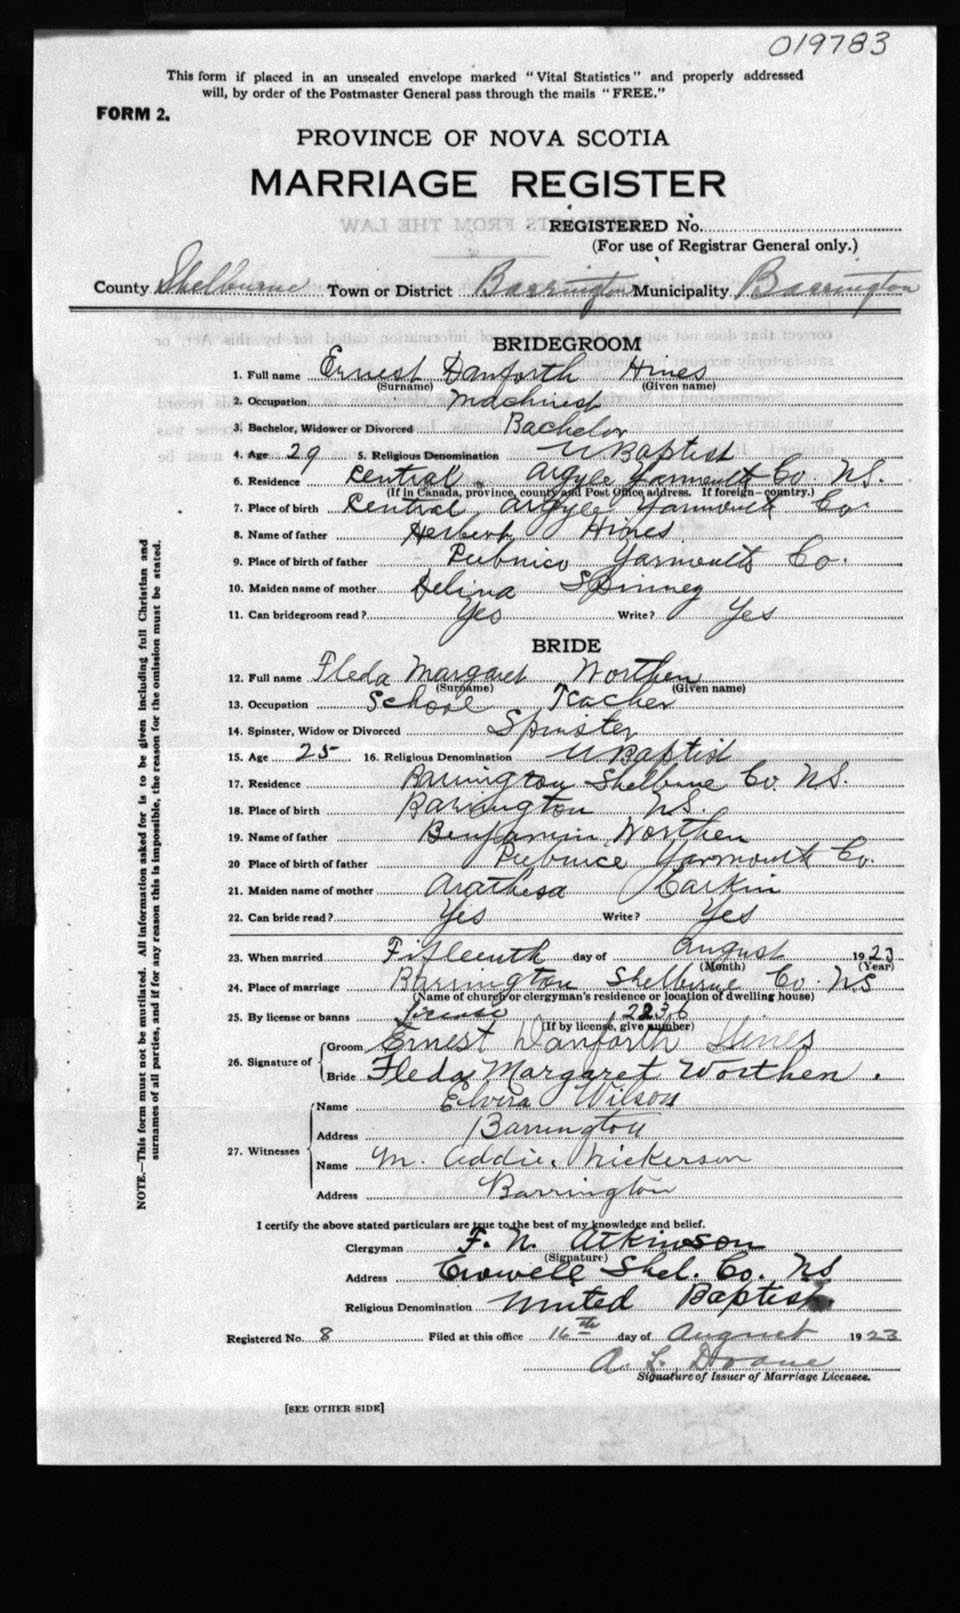 019783
This form if placed in an unsealed envelope marked "Vital Statistics" and properly addressed
will, by order of the Postmaster General pass through the mails "FREE."
FORM 2.
PROVINCE OF NOVA SCOTIA
MARRIAGE REGISTER
REGISTERED No.
(For use of Registrar General only.)
County Shelburne Town or District Barrington Municipality Barrington
BRIDEGROOM
1. Full name Ernest Danforth Hines
(Surname) (Given name)
2. Occupation Machinist
3. Bachelor, Widower or Divorced Bachelor
4. Age 29 5. Religious Denomination U Baptist
6. Residence Central Argyle Yarmouth Co. N.S.
(If in Canada, province, county and Post Office address. If foreign—country.)
7. Place of birth Central Argyle Yarmouth Co.
8. Name of father Herbert Hines
9. Place of birth of father Pubnico Yarmouth Co.
10. Maiden name of mother Delina Spinney
11. Can bridegroom read? Yes Write? Yes
BRIDE
12. Full name Fleda Margaret Worthen
(Surname) (Given name)
13. Occupation School Teacher
14. Spinster, Widow or Divorced Spinster
15. Age 25 16. Religious Denomination U Baptist
17. Residence Barrington Shelburne Co. N.S.
18. Place of birth Barrington N.S.
19. Name of father Benjamin Worthen
20 Place of birth of father Pubnico Yarmouth Co.
21. Maiden name of mother Arathesa Larkin
22. Can bride read? Yes Write? Yes
23. When married Fifteenth day of August 1923
(Month) (Year)
24. Place of marriage Barrington Shelburne Co. N.S
(Name of church or clergyman's residence or location of dwelling house)
25. By license or banns License 2236
(If by license, give number)
26. Signature of Groom Ernest Danforth Hines
Bride Fleda Margaret Worthen.
27. Witnesses Name Elvira Wilson
Address Barrington
Name M. Addie Nickerson
Address Barrington
I certify the above stated particulars are true to the best of my knowledge and belief.
Clergyman F. N. Atkinson
(Signature)
Address Crowell Shel. Co. N.S
Religious Denomination United Baptist.
Registered No. 8 Filed at this office 16th day of August 1923
A. L. Doane
Signature of Issuer of Marriage Licenses.
[SEE OTHER SIDE]
NOTE.—This form must not be mutilated. All information asked for is to be given including full Christian and
surnames of all parties, and if for any reason this is impossible, the reason for the omission must be stated.